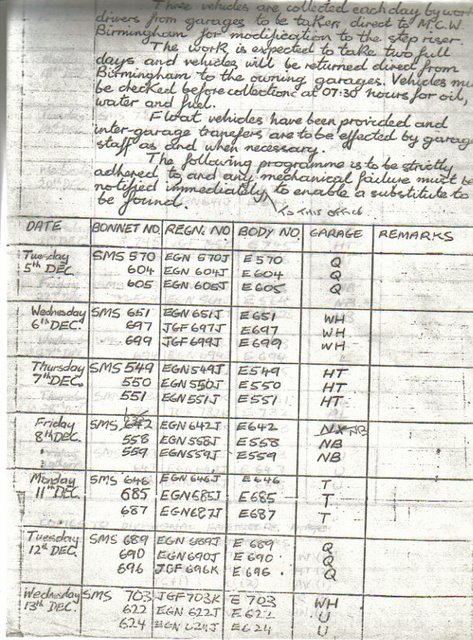 These vehicles are collected each day by
drivers from garages to be taken direct to M.C.W.
Birmingham for modification to the step riser.
The work is expected to take two full
days and vehicles will be returned direct from
Birmingham to the owning garages. Vehicles
be checked before collection at 07:30 hours for oil,
water and fuel.
Float vehicles have been provided and
inter-garage transfers are to be effected by garage
staff as and when necessary.
The following programme is to be strictly
adhered to and any mechanical failure must be
notified immediately to enable a substitute to
be found.
to this office
DATE BONNET NO. REGN. NO. BODY NO. GARAGE REMARKS
Tuesday SMS 570 EGN 570J E570 Q
5th DEC. 604 EGN 604J E604 Q
605 EGN 605J E605 Q
Wednesday SMS 651 EGN 651J E651 WH
6th DEC. 697 JGF 697J E697 WH
699 JGF 699J E699 WH
Thursday SMS 549 EGN 549J E549 HT
7th DEC. 550 EGN 550J E550 HT
551 EGN 551J E551 HT
Friday SMS 642 EGN 642J E642 NB
8th DEC. 558 EGN 558J E558 NB
559 EGN 559J E559 NB
Monday SMS 646 EGN 646J E646 T
11th DEC. 685 EGN 685J E685 T
687 EGN 687J E687 T
Tuesday SMS 689 EGN 689J E689 Q
12th DEC. 690 EGN 690J E690 Q
696 JGF 696K E696 Q
Wednesday SMS 703 JGF 703K E703 WH
13th DEC. 622 EGN 622J E622 U
624 EGN 624J E624 U